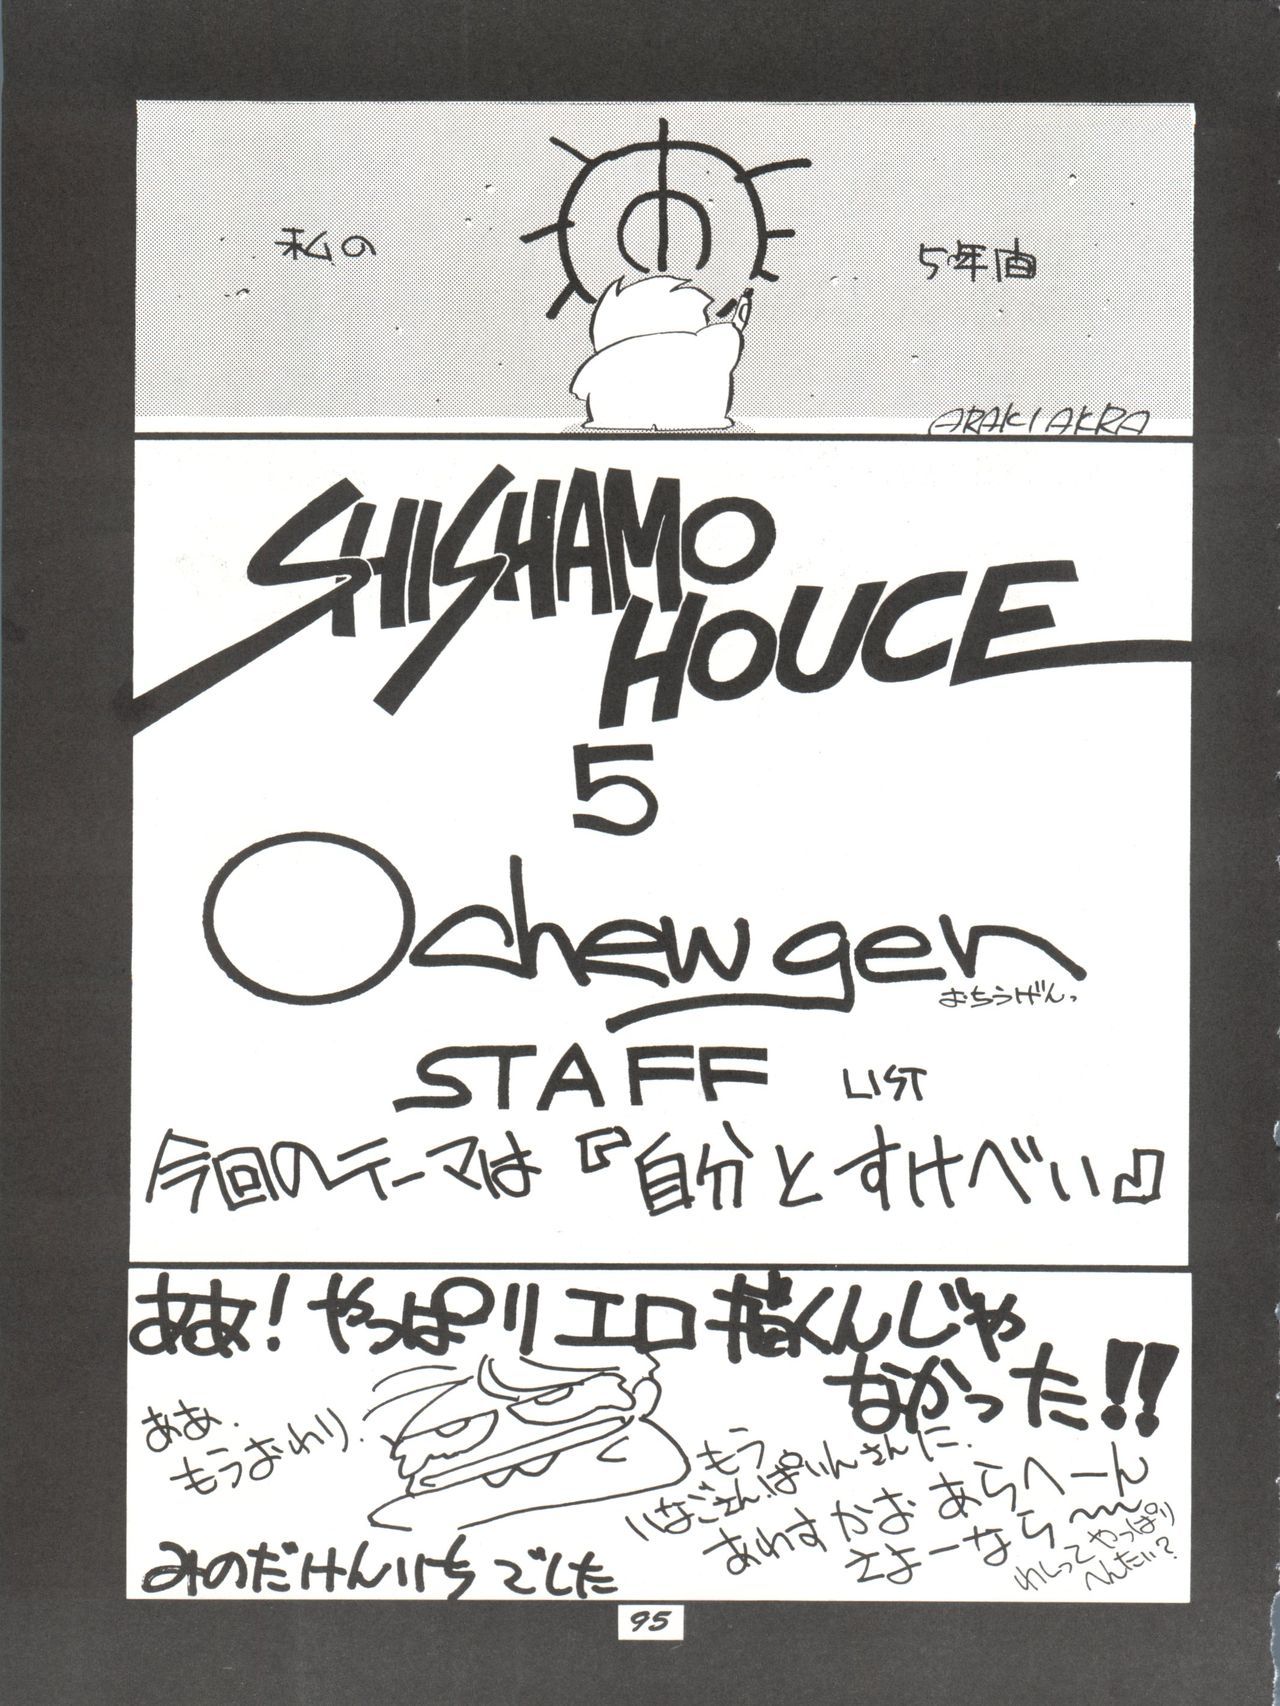 私の
5年間
ARAKI AKRA
SHISHAMO
HOUCE
5
Ochewgen
おちうげんっ
STAFF LIST
今回のテーマは『自分とすけべい』
ああ！やっぱりエロ描くんじゃ
なかった!!
ああ.
もうおわり.
もう
いなごさん.ぱいんさんに.
あわすかお あらへーん
さよーなら〜
わしってやっぱり
へんたい?
みのだけんいちでした
95